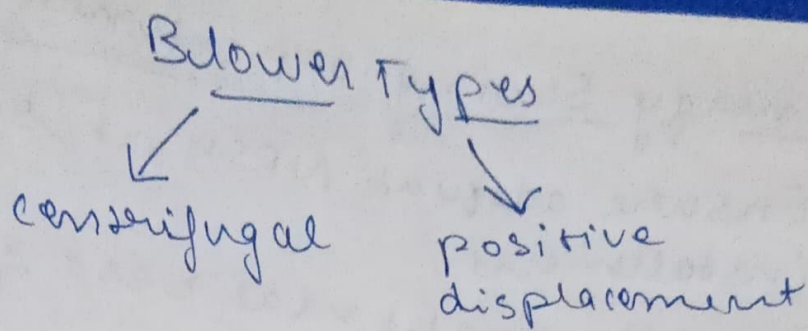 Blower Types
centrifugal
positive
displacement